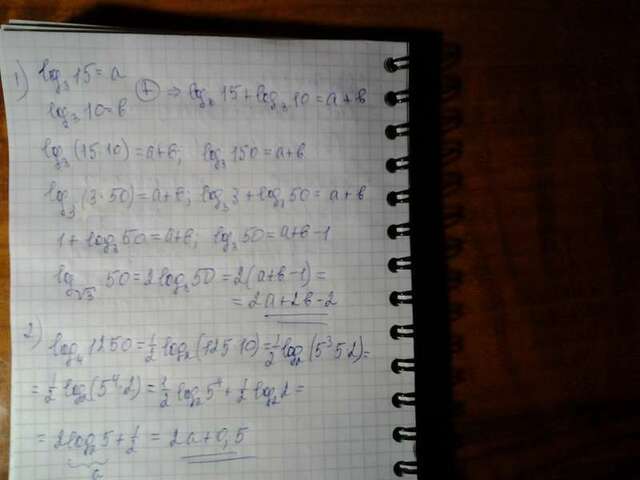 1) log₃15 = a
log₃10 = в
(+) ⇒ log₃15 + log₃10 = a+в
log₃(15·10) = a+в; log₃150 = a+в
log₃(3·50) = a+в; log₃3 + log₃50 = a+в
1 + log₃50 = a+в; log₃50 = a+в-1
log√3 50 = 2log₃50 = 2(a+в-1) =
= 2a+2в-2
2) log₄1250 = ½log₂(125·10) = ½log₂(5³·5·2) =
= ½log₂(5⁴·2) = ½log₂5⁴ + ½log₂2 =
= 2log₂5 + ½ = 2a+0,5
a